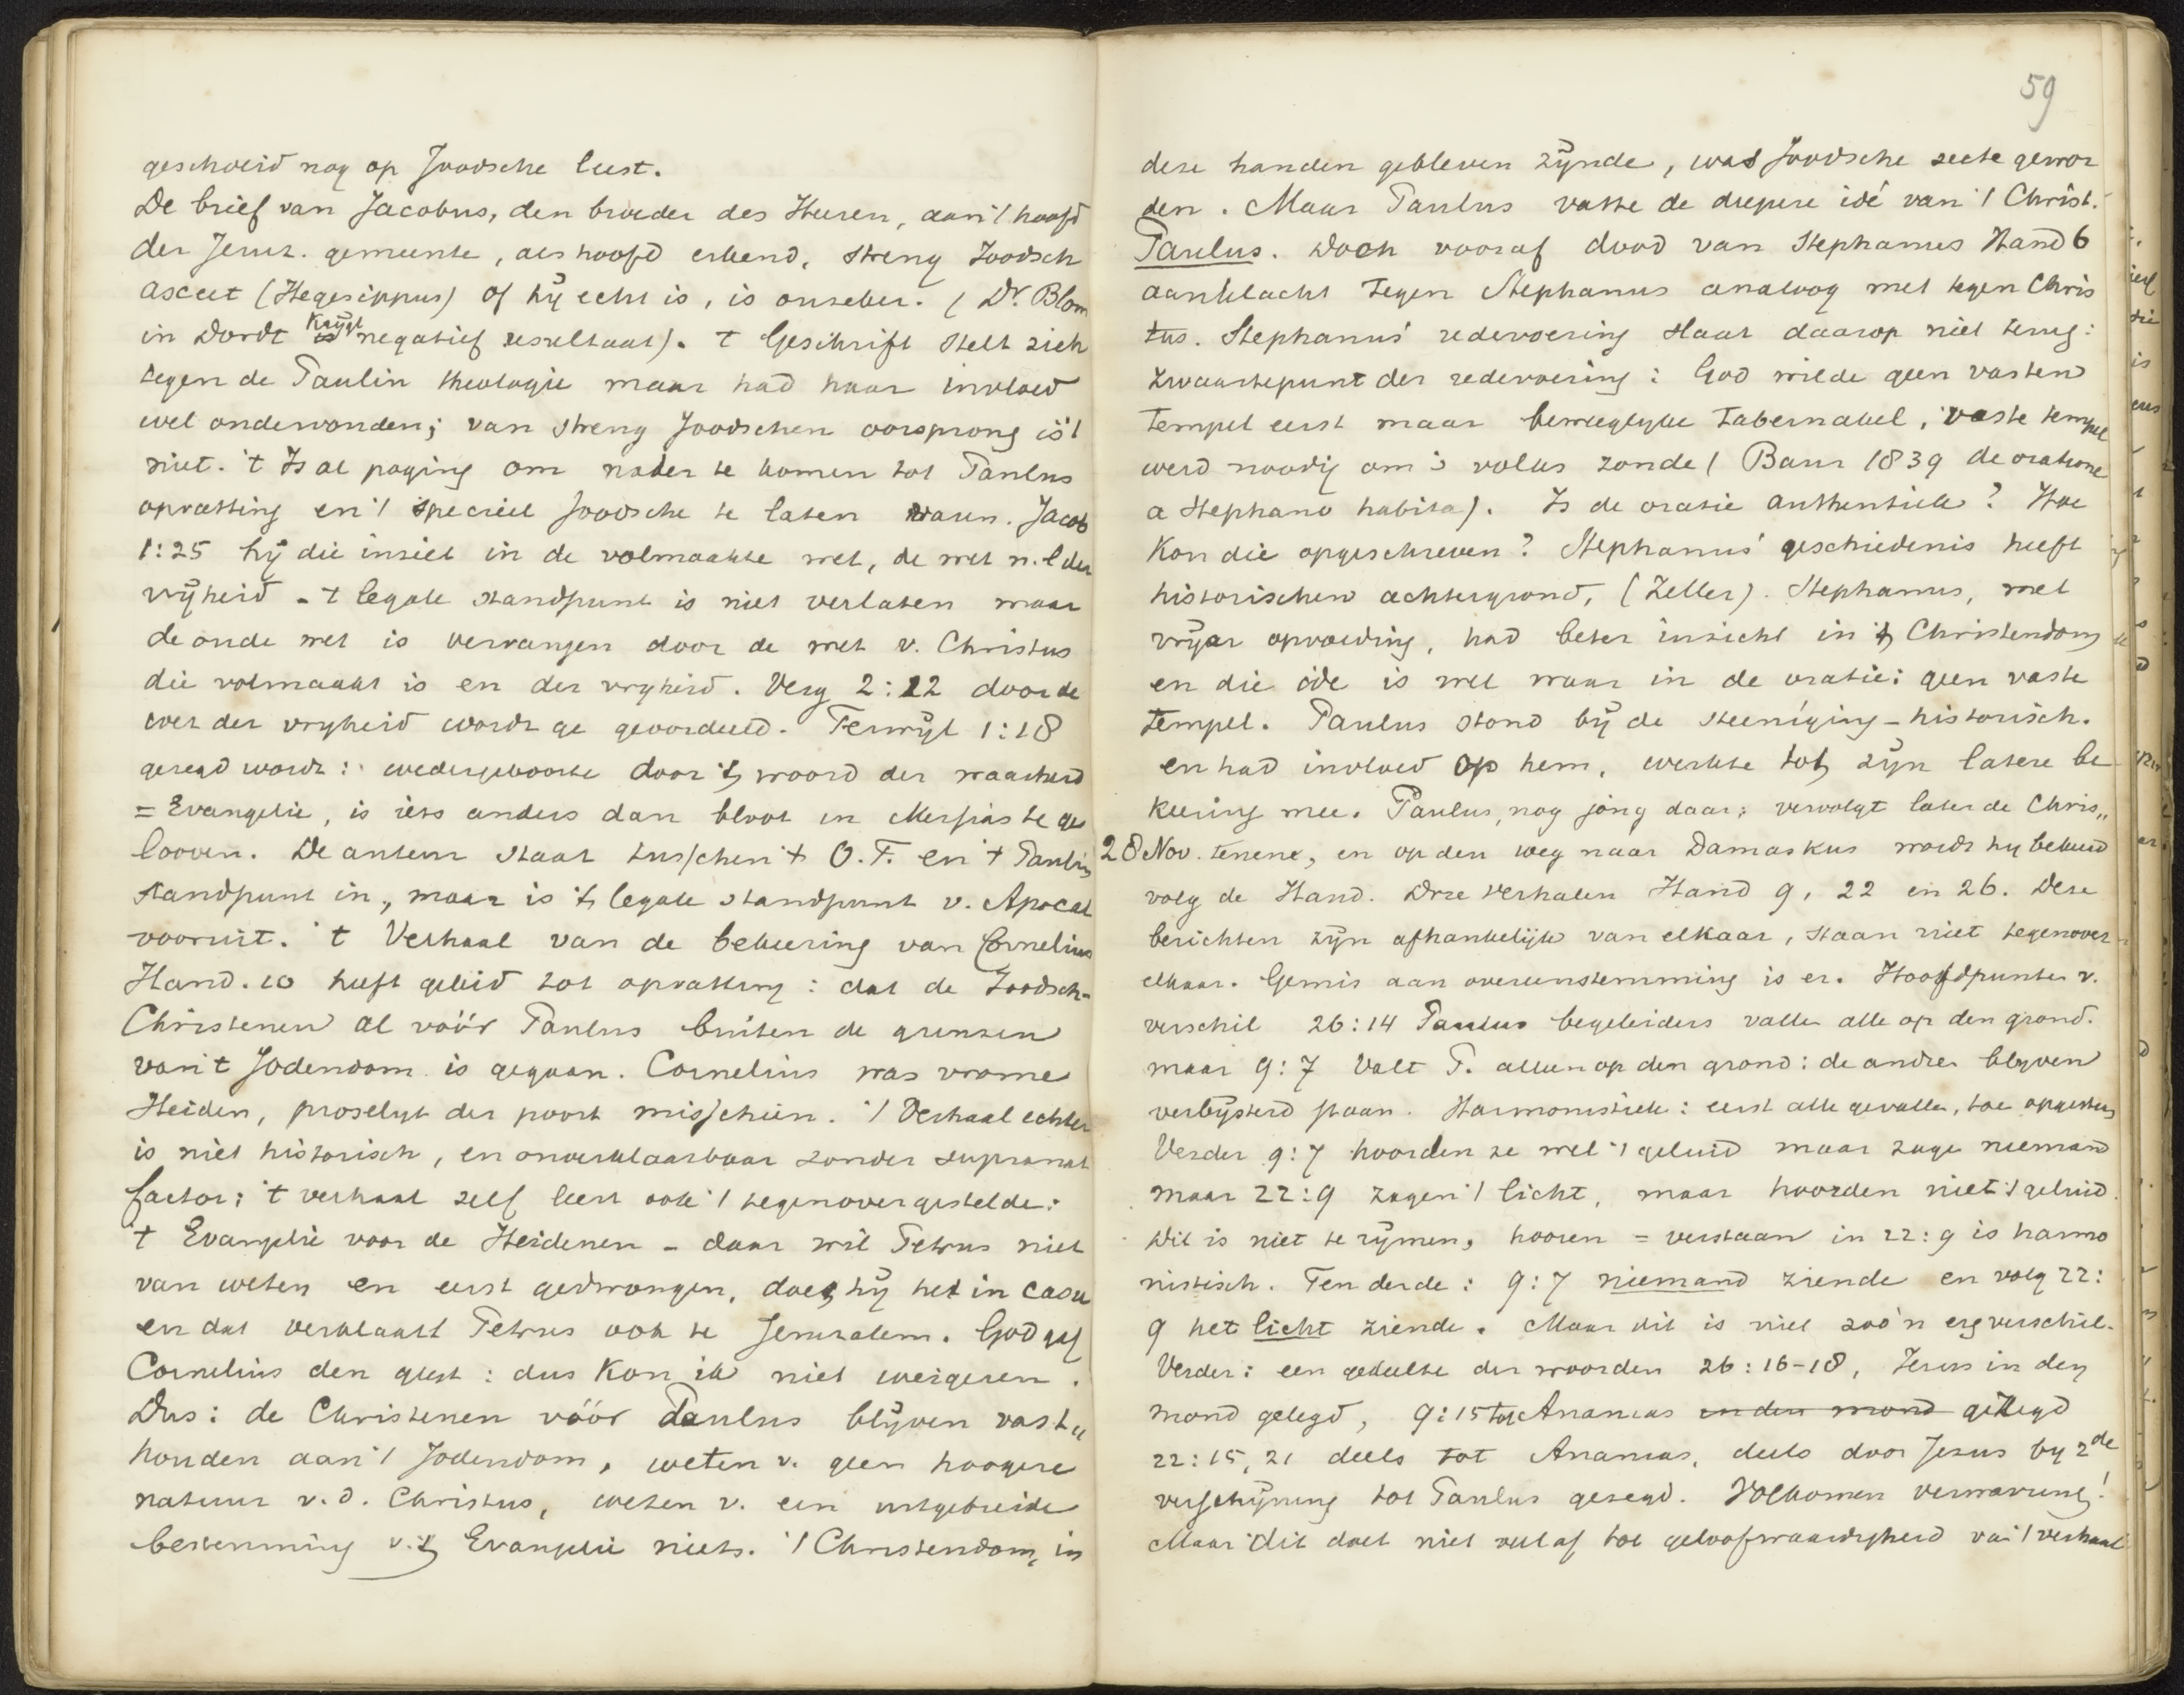 geschoeid nog op Joodsche leest.
De brief van Jacobus, den broeder des Heeren, aan 't hoofd
der Jeruz. gemeente, als hoofd erkend, streng Joodsch
asceet (Hegesippus) of hij echt is, is onzeker. (Dr. Blom
in Dordt krijgt negatief resultaat). 't Geschrift stelt zich
tegen de Paulin theologie maar had haar invloed
wel ondervonden; van streng Joodschen oorsprong is 't
niet. 't Is al poging om nader te komen tot Paulus
opvatting en 't speciëel Joodsche te laten varen. Jacob
1:25 hij die inziet in de volmaakte wet, de wet n.l der
vrijheid - 't legale standpunt is niet verlaten maar
de oude wet is vervangen door de wet v. Christus
die volmaakt is en der vryheid. Verg 2:12 door de
wet der vryheid wordt ge geoordeeld. Terwijl 1:18
gezegd wordt: wedergeboorte door 't woord der waarheid
= Evangelie, is iets anders dan bloot in Messias te ge
looven. De auteur staat tusschen 't O.T. en 't Paulin
standpunt in, maar is 't legale standpunt v. Apocal
vooruit. 't Verhaal van de bekeering van Cornelius
Hand. 10 heeft geleid tot opvatting: dat de Joodsch-
Christenen al vóór Paulus buiten de grenzen
van 't Jodendom is gegaan. Cornelius was vrome
Heiden, proselyt der poort misschien. 't Verhaal echter
is niet historisch, en onverklaarbaar zonder supranat
factor; 't verhaal zelf leert ook 't tegenovergestelde:
't Evangelie voor de Heidenen - daar wil Petrus niet
van weten en eerst gedwongen, doet hij het in casu
en dat verklaart Petrus ook te Jeruzalem. God gaf
Cornelius den geest: dus kon ik niet weigeren.
Dus: de Christenen vóór Paulus blijven vast„
houden aan 't Jodendom, weten v. geen hoogere
natuur v.d. Christus, weten v. een uitgebreide
bestemming v. 't Evangelie niets. 't Christendom, in
59
dese handen gebleven zijnde, was Joodsche secte gewor
den. Maar Paulus vatte de diepere idé van 't Christ.
Paulus. Doch vooraf dood van Stephanus Hand 6
aanklacht tegen Stephanus analoog met tegen Chris
tus. Stephanus' redevoering slaat daarop niet terug:
zwaartepunt der redevoering: God wilde geen vasten
tempel eerst maar beweeglyke tabernakel, vaste tempel
werd noodig om 's volks zonde (Baur 1839 de oratione
a Stephano habita). Is de oratie authentiek? Hoe
kon die opgeschreven? Stephanus' geschiedenis heeft
historischen achtergrond, (Zeller). Stephanus, met
vrijer opvoeding, had beter inzicht in 't Christendom
en die idé is wel waar in de oratie: geen vaste
tempel. Paulus stond bij de steeniging - historisch.
en had invloed op hem, werkte tot zijn latere be
keering mee. Paulus, nog jong daar; vervolgt later de Chris„
28 Nov. tenene, en op den weg naar Damaskus wordt hy bekeerd
volg de Hand. Drie verhalen Hand 9, 22 en 26. Dese
berichten zijn afhankelijk van elkaar, staan niet tegenover
elkaar. Gemis aan overeenstemming is er. Hoofdpunten v.
verschil 26:14 Paulus begeleiders vallen alle op den grond.
maar 9:7 valt P. alleen op den grond: de andren blyven
verbijsterd staan. Harmonistiek: eerst alle gevallen, toe opgestaan
Verder 9:7 hoorden ze wel 't geluid maar zage niemand
maar 22:9 zagen 't licht, maar hoorden niet 't geluid.
Dit is niet te rijmen, hooren = verstaan in 22:9 is harmo
nistisch. Ten derde: 9:7 niemand ziende en volg 22:
9 het licht ziende. Maar dit is niet zoo'n erg verschil.
Verder: een gedeelte der woorden 26:16-18, Jezus in den
mond gelegd, 9:15 tot Ananias in den mond gezegd
22:15, 21 deels tot Ananias, deels door Jezus by 2de
verschijning tot Paulus gezegd. Volkomen verwarring!
Maar dit doet niet veel af tot geloofwaardigheid van 't verhaal